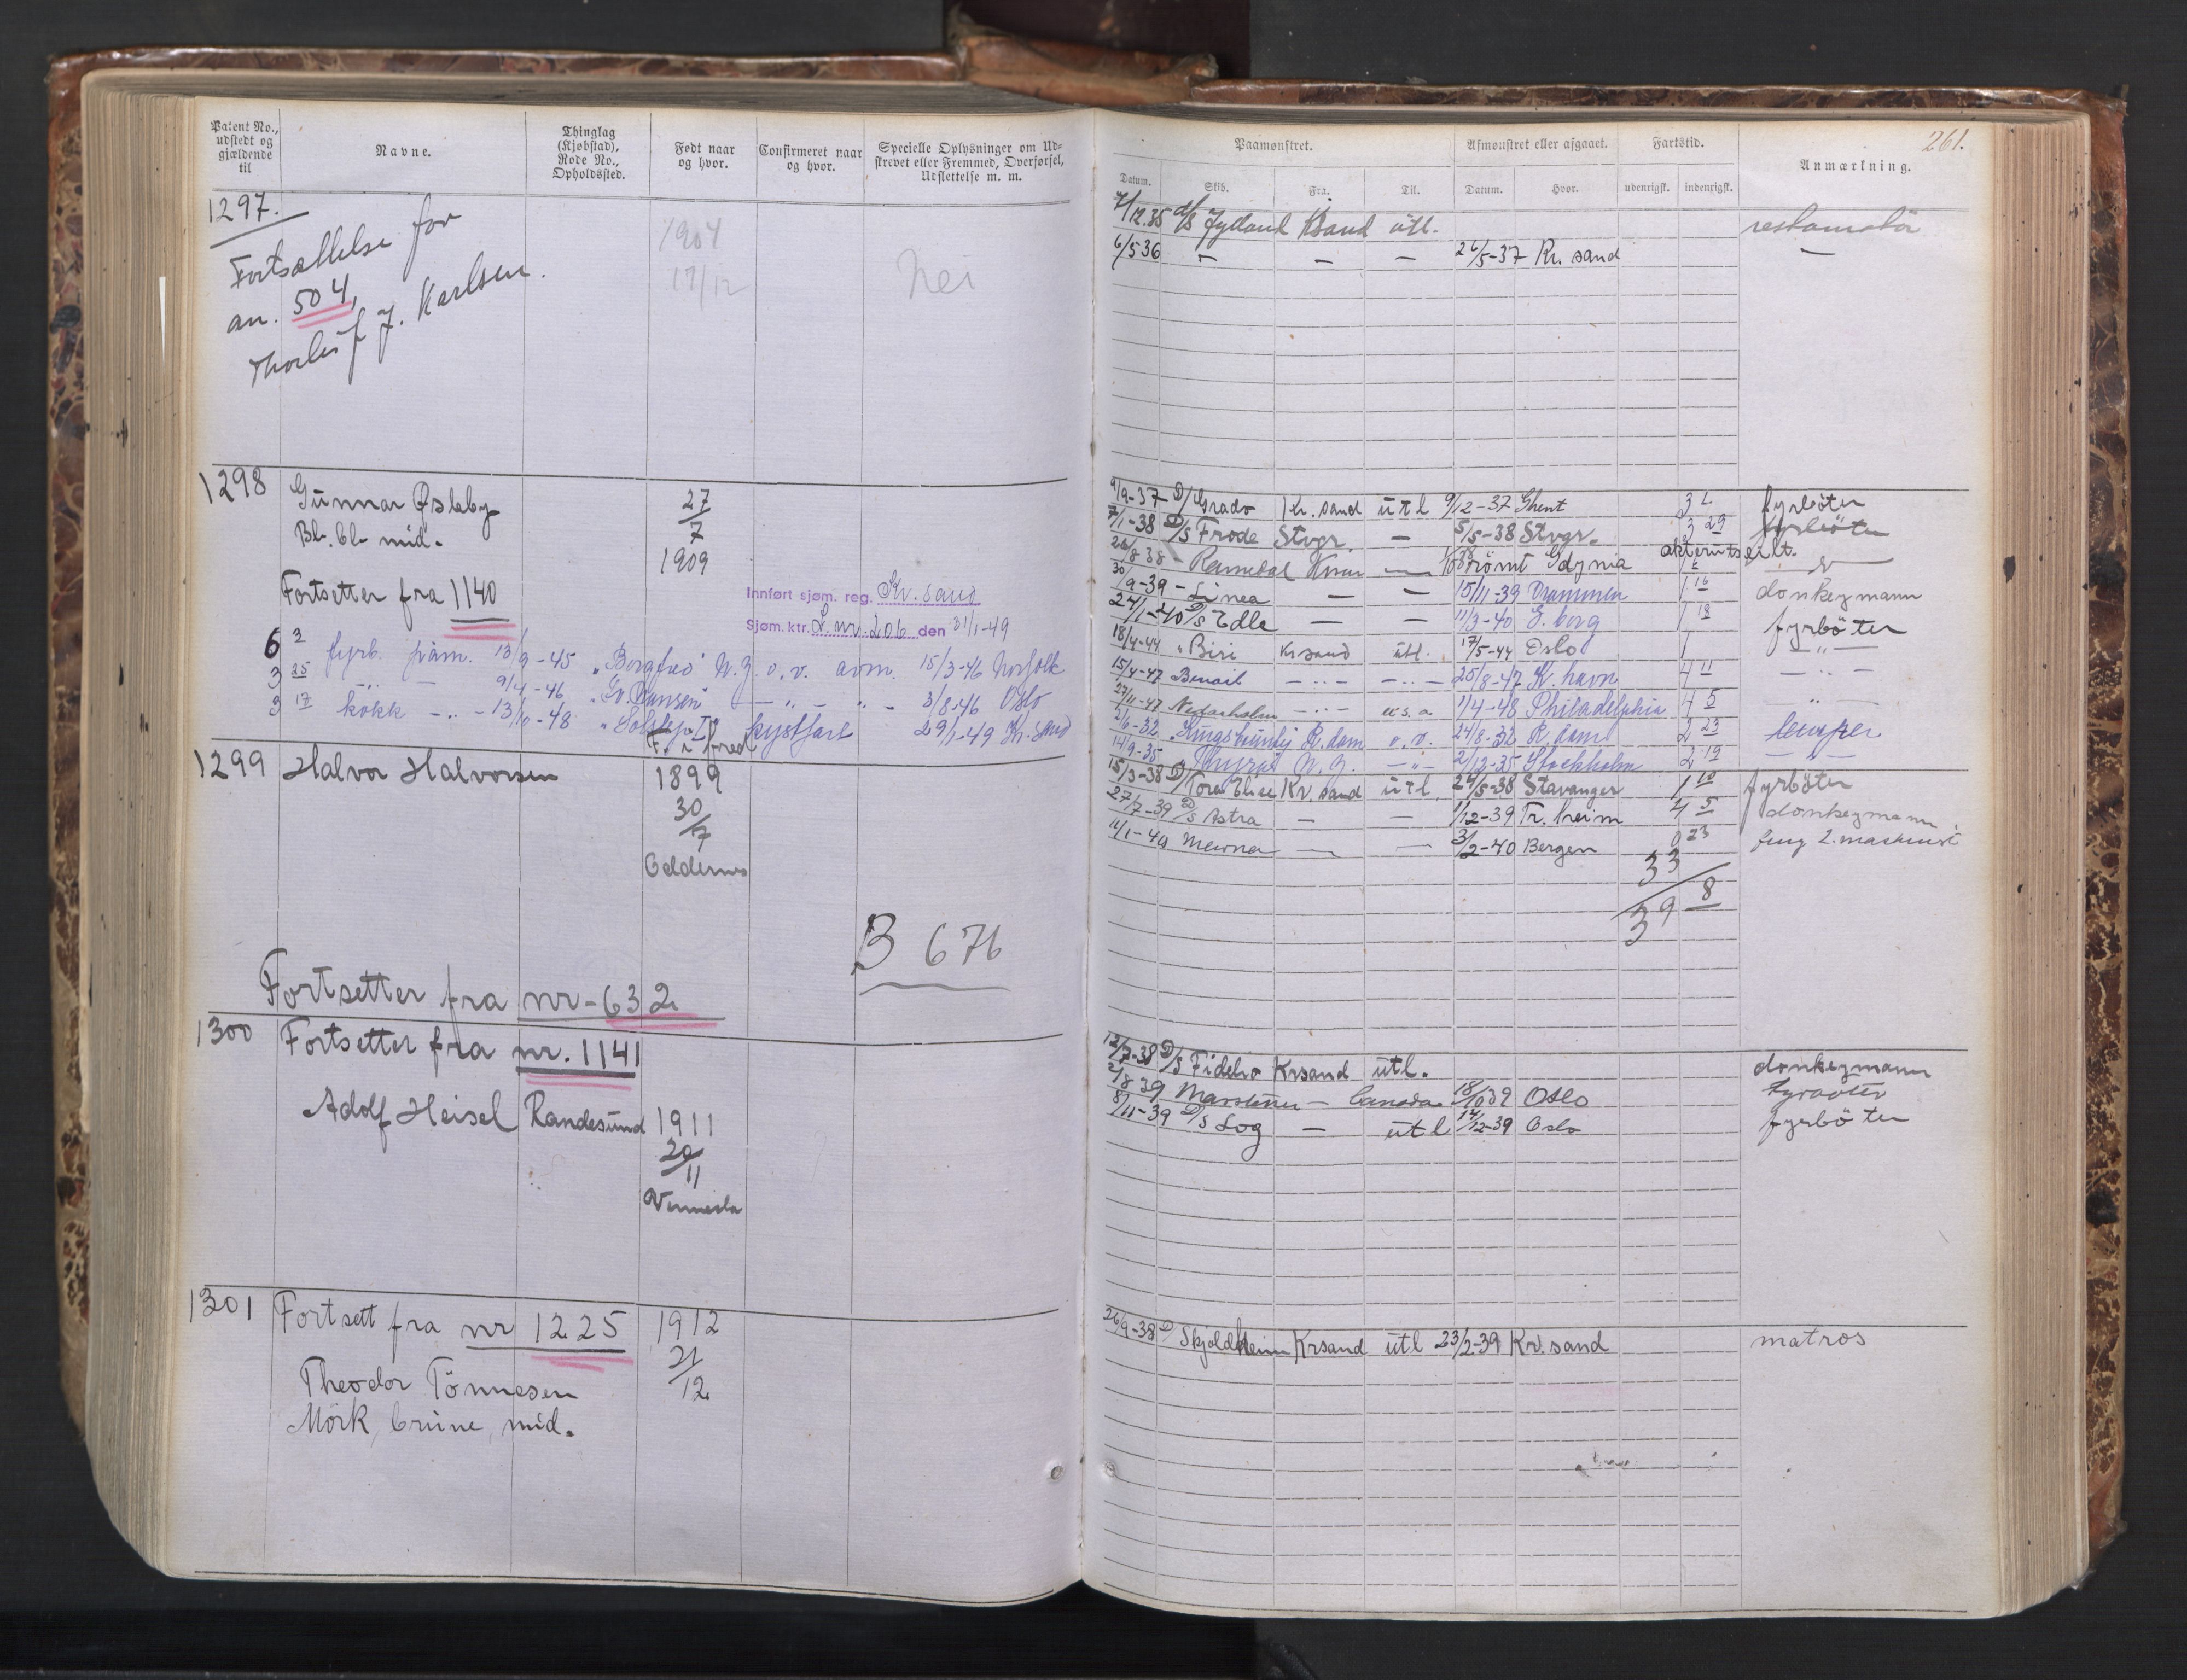 Patent No., udstedt og gjældende til
Navne.
Thinglag (Kjøbstad), Rode No., Opholdssted.
Født naar og hvor.
Confirmeret naar og hvor.
Specielle Oplysninger om Udskrevet eller Fremmed, Overførsel, Udslettelse m. m.
1297.
Fortsættelse for
an. 504,
Thorleif J. Karlsen.
1904
17/12
Nei
1298 Gunnar Øsleby
Bl. bl. mid.
27/7
1909
Fortsetter fra 1140
Innført sjøm. reg. Kr. sand
Sjøm.ktr. L. nr. 206 den 31/1-49
6 2 fyrb. påm. 13/9-45 "Borgfred" N.Y. o.v. avm. 15/3-46 Norfolk
3 25 -"- - 9/4-46 - " - " - 3/8-46 Oslo
3 17 kokk -"- 13/10-48 kystfart 29/1-49 Kr. sand
1299 Halvor Halvorsen
1899
30/7
Oddernes
B 676
Fortsetter fra nr-632
1300 Fortsetter fra nr. 1141
Adolf Heisel Randesund 1911
29/11
Vennesla
1301 Fortsett fra nr 1225 1912
21/12
Theodor Tönnesen
Mörk, brune, mid.
261.
Paamønstret.
Afmønstret eller afgaaet.
Fartstid.
Anmærkning.
Datum. Skib. Fra. Til. Datum. Hvor. udenrigsk. indenrigsk.
7/12.35 d/s Jylland Krsand utl. restauratör
6/5 36 - - - 26/5-37 Kr. sand -
9/9-37 D/ Grado Kr. sand utl 9/12-37 Ghent 3 fyrböter
7/1-38 D/s Frode Stvgr. - 5/5-38 Stvgr. 3 29 fyrböter
26/8 38 - Ramsdal - römt Gdynia akterutseilt.
30/9-39 - Linea - - 15/11-39 Drammen 1 16 donkeymann
24/1-40 D/s Edle - - 11/3-40 G. borg 1 18 fyrböter
18/4-44 " Biri Krsand utl. 17/5-44 Oslo 1 - " -
15/4-47 -"- -"- 25/8-47 K. havn 4 11 - " -
27/11-47 Nedenholm -"- u.s.a 1/4-48 Philadelphia 4 5 - " -
2/6-32 "Kingscounty R.dam o.v. 24/8-32 R.dam 2 23 lemper
14/9-35 N.Y. -"- 2/12-35 Stockholm 2 19 - " -
15/3-38 D/ Tora Elise Kr. sand utl. 24/5-38 Stavanger 1 10 fyrböter
27/7-39 D/s Astra - - 1/12-39 Tr. heim 4 5 donkeymann
11/1-40 - - 3/2-40 Bergen 0 23 fung 2. maskinist
33
39 8
12/7-38 D/s Fidelio Krsand utl. donkeymann
2/8 39 - Canada 18/10 39 Oslo fyrböter
8/11-39 D/s Log - utl 14/12-39 Oslo fyrböter
26/9-38 D/ Skjoldheim Krsand utl 23/2-39 Kr. sand matros